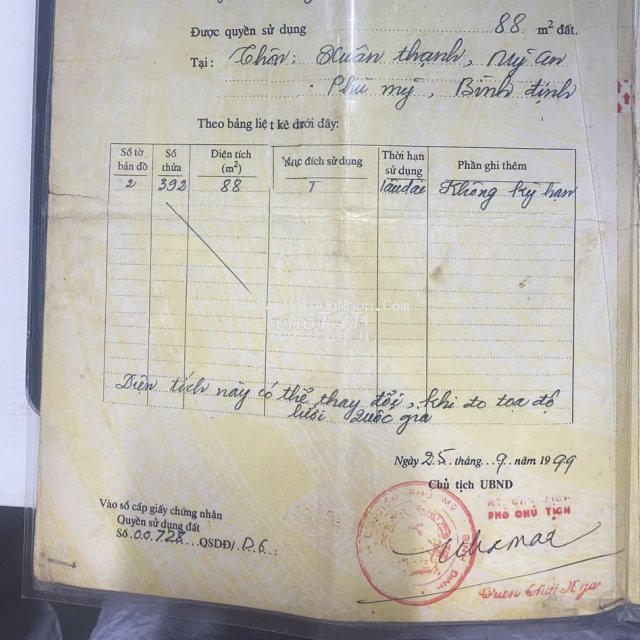 Được quyền sử dụng 88 m² đất.
Tại: Thôn: Xuân thạnh, Mỹ An
Phù mỹ, Bình định
Theo bảng liệt kê dưới đây:
Số tờ bản đồ Số thửa Diện tích (m²) Mục đích sử dụng Thời hạn sử dụng Phần ghi thêm
2 392 88 T Lâu dài Không kỳ hạn
Diện tích này có thể thay đổi, khi đo tọa độ
lưới quốc gia
Ngày 25 tháng 9 năm 1999
Chủ tịch UBND
KT. CHỦ TỊCH
PHÓ CHỦ TỊCH
Vào sổ cấp giấy chứng nhận
Quyền sử dụng đất
Số 00728 QSDĐ/ D6